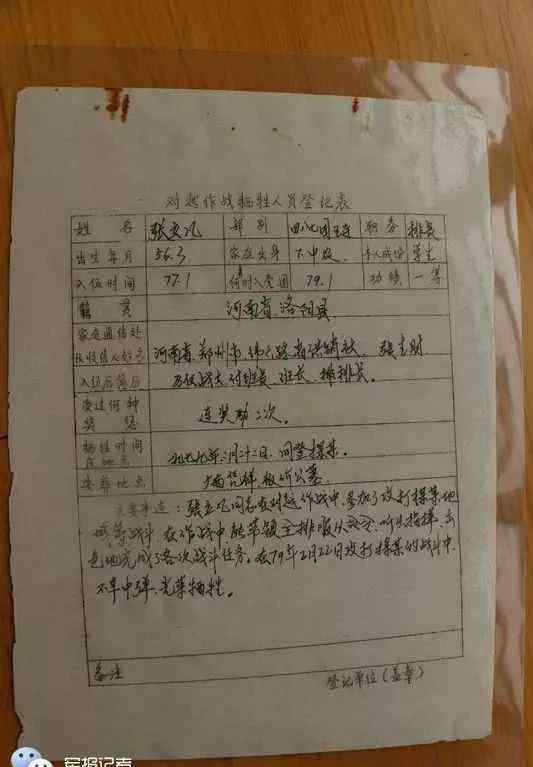 对越作战牺牲人员登记表
姓名 张立凡 部别 团连 职务 排长
出生年月 56.3 家庭出身 下中农 本人成份 学生
入伍时间 77.1 何时入党团 79.1 功绩 一等
籍贯 河南省洛阳县
家庭通信处
及收信人姓名 河南省郑州市纬路省供销社
入伍后简历 历任战士付班长、班长、排长。
受过何种
奖惩 连奖励二次。
牺牲时间
及地点 一九七九年二月二十二日、同登探某。
安葬地点 广西凭祥板公墓。
主要事迹：张立凡同志在对越作战中，参加了攻打探某地
等战斗，在作战中能带领全排服从决定，听从指挥，出
色地完成了各次战斗任务。在79年2月22日攻打探某的战斗中，
不幸中弹，光荣牺牲。
备注
登记单位（盖章）
军报记者